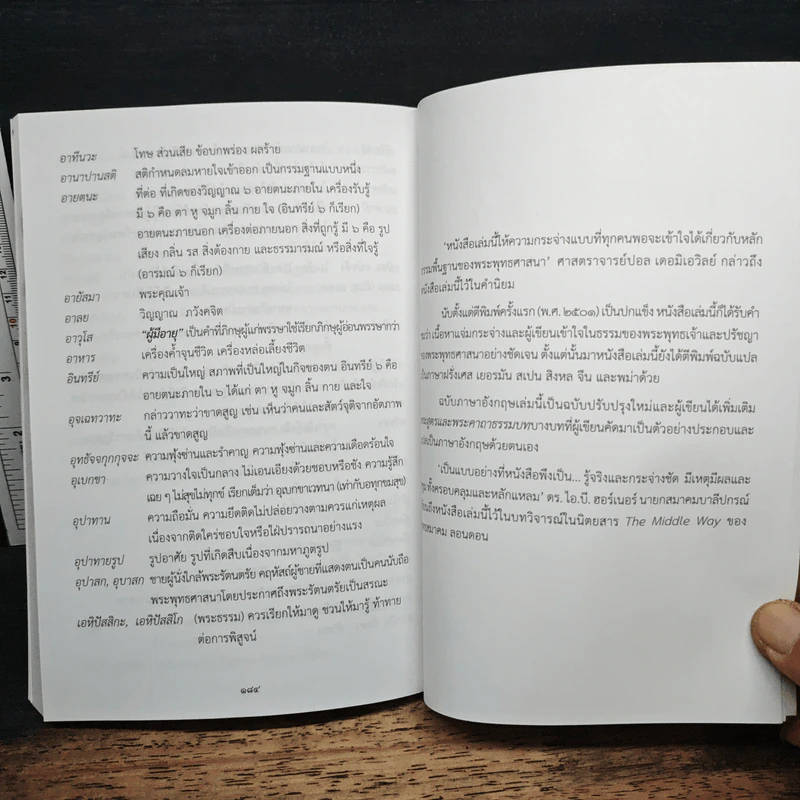 อาทีนวะ โทษ ส่วนเสีย ข้อบกพร่อง ผลร้าย
อานาปานสติ สติกำหนดลมหายใจเข้าออก เป็นกรรมฐานแบบหนึ่ง
อายตนะ ที่ต่อ ที่เกิดของวิญญาณ ๖ อายตนะภายใน เครื่องรับรู้
มี ๖ คือ ตา หู จมูก ลิ้น กาย ใจ (อินทรีย์ ๖ ก็เรียก)
อายตนะภายนอก เครื่องต่อภายนอก สิ่งที่ถูกรู้ มี ๖ คือ รูป
เสียง กลิ่น รส สิ่งต้องกาย และธรรมารมณ์ หรือสิ่งที่ใจรู้
(อารมณ์ ๖ ก็เรียก)
อายัสมา พระคุณเจ้า
อาลย วิญญาณ ภวังคจิต
อาวุโส "ผู้มีอายุ" เป็นคำที่ภิกษุผู้แก่พรรษาใช้เรียกภิกษุผู้อ่อนพรรษากว่า
อาหาร เครื่องค้ำจุนชีวิต เครื่องหล่อเลี้ยงชีวิต
อินทรีย์ ความเป็นใหญ่ สภาพที่เป็นใหญ่ในกิจของตน อินทรีย์ ๖ คือ
อายตนะภายใน ๖ ได้แก่ ตา หู จมูก ลิ้น กาย และใจ
อุจเฉทวาทะ กล่าววาทะว่าขาดสูญ เช่น เห็นว่าคนและสัตว์จุติจากอัตภาพ
นี้ แล้วขาดสูญ
อุทธัจจกุกกุจจะ ความฟุ้งซ่านและรำคาญ ความฟุ้งซ่านและความเดือดร้อนใจ
อุเบกขา ความวางใจเป็นกลาง ไม่เอนเอียงด้วยชอบหรือชัง ความรู้สึก
เฉย ๆ ไม่สุขไม่ทุกข์ เรียกเต็มว่า อุเบกขาเวทนา (เท่ากับอทุกขมสุข)
อุปาทาน ความถือมั่น ความยึดติดไม่ปล่อยวางตามควรแก่เหตุผล
เนื่องจากติดใคร่ชอบใจหรือใฝ่ปรารถนาอย่างแรง
อุปาทายรูป รูปอาศัย รูปที่เกิดสืบเนื่องจากมหาภูตรูป
อุปาสก, อุบาสก ชายผู้นั่งใกล้พระรัตนตรัย คฤหัสถ์ผู้ชายที่แสดงตนเป็นคนนับถือ
พระพุทธศาสนาโดยประกาศถึงพระรัตนตรัยเป็นสรณะ
เอหิปัสสิกะ, เอหิปัสสิโก (พระธรรม) ควรเรียกให้มาดู ชวนให้มารู้ ท้าทาย
ต่อการพิสูจน์
๑๘๔
'หนังสือเล่มนี้ให้ความกระจ่างแบบที่ทุกคนพอจะเข้าใจได้เกี่ยวกับหลัก
ธรรมพื้นฐานของพระพุทธศาสนา' ศาสตราจารย์ปอล เดอมิเอวิลย์ กล่าวถึง
หนังสือเล่มนี้ไว้ในคำนิยม
นับตั้งแต่ตีพิมพ์ครั้งแรก (พ.ศ. ๒๕๐๑) เป็นปกแข็ง หนังสือเล่มนี้ก็ได้รับคำ
ว่า เนื้อหาแจ่มกระจ่างและผู้เขียนเข้าใจในธรรมของพระพุทธเจ้าและปรัชญา
พระพุทธศาสนาอย่างชัดเจน ตั้งแต่นั้นมาหนังสือเล่มนี้ยังได้ตีพิมพ์ฉบับแปล
เป็นภาษาฝรั่งเศส เยอรมัน สเปน สิงหล จีน และพม่าด้วย
ฉบับภาษาอังกฤษเล่มนี้เป็นฉบับปรับปรุงใหม่และผู้เขียนได้เพิ่มเติม
พระสูตรและพระคาถาธรรมบทบางบทที่ผู้เขียนคัดมาเป็นตัวอย่างประกอบและ
เป็นภาษาอังกฤษด้วยตนเอง
'เป็นแบบอย่างที่หนังสือพึงเป็น... รู้จริงและกระจ่างชัด มีเหตุมีผลและ
ทั้งครอบคลุมและหลักแหลม' ดร. ไอ.บี. ฮอร์เนอร์ นายกสมาคมบาลีปกรณ์
ถึงหนังสือเล่มนี้ไว้ในบทวิจารณ์ในนิตยสาร The Middle Way ของ
สมาคม ลอนดอน